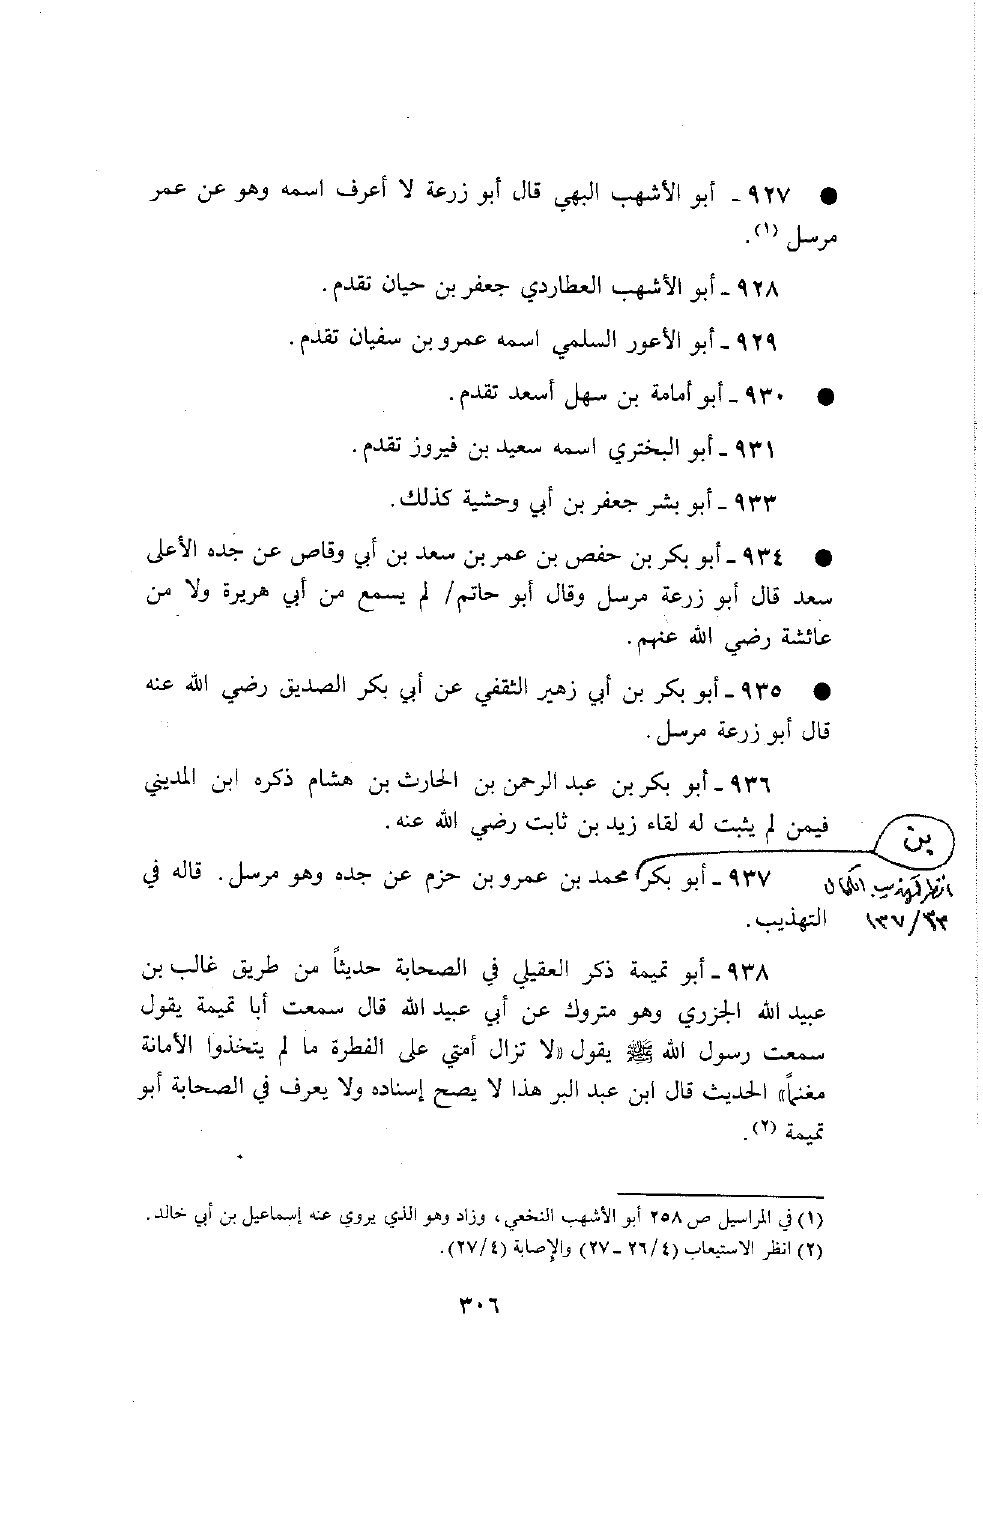 ● ٩٢٧ ـ أبو الأشهب البهي قال أبو زرعة لا أعرف اسمه وهو عن عمر
مرسل (١).
٩٢٨ ـ أبو الأشهب العطاردي جعفر بن حيان تقدم.
٩٢٩ ـ أبو الأعور السلمي اسمه عمرو بن سفيان تقدم.
● ٩٣٠ ـ أبو أمامة بن سهل أسعد تقدم.
٩٣١ ـ أبو البختري اسمه سعيد بن فيروز تقدم.
٩٣٣ ـ أبو بشر جعفر بن أبي وحشية كذلك.
● ٩٣٤ ـ أبو بكر بن حفص بن عمر بن سعد بن أبي وقاص عن جده الأعلى
سعد قال أبو زرعة مرسل وقال أبو حاتم/ لم يسمع من أبي هريرة ولا من
عائشة رضي الله عنهم.
● ٩٣٥ ـ أبو بكر بن أبي زهير الثقفي عن أبي بكر الصديق رضي الله عنه
قال أبو زرعة مرسل.
٩٣٦ ـ أبو بكر بن عبد الرحمن بن الحارث بن هشام ذكره ابن المديني
فيمن لم يثبت له لقاء زيد بن ثابت رضي الله عنه.
بن
٩٣٧ ـ أبو بكر محمد بن عمرو بن حزم عن جده وهو مرسل. قاله في
التهذيب.
انظر تهذيب الكمال
٣٣/١٣٧
٩٣٨ ـ أبو تميمة ذكر العقيلي في الصحابة حديثاً من طريق غالب بن
عبيد الله الجزري وهو متروك عن أبي عبيد الله قال سمعت أبا تميمة يقول
سمعت رسول الله ﷺ يقول «لا تزال أمتي على الفطرة ما لم يتخذوا الأمانة
مغنماً» الحديث قال ابن عبد البر هذا لا يصح إسناده ولا يعرف في الصحابة أبو
تميمة (٢).
(١) في المراسيل ص ٢٥٨ أبو الأشهب النخعي، وزاد وهو الذي يروي عنه إسماعيل بن أبي خالد.
(٢) انظر الاستيعاب (٤/ ٢٦ ـ ٢٧) والإصابة (٤/ ٢٧).
٣٠٦